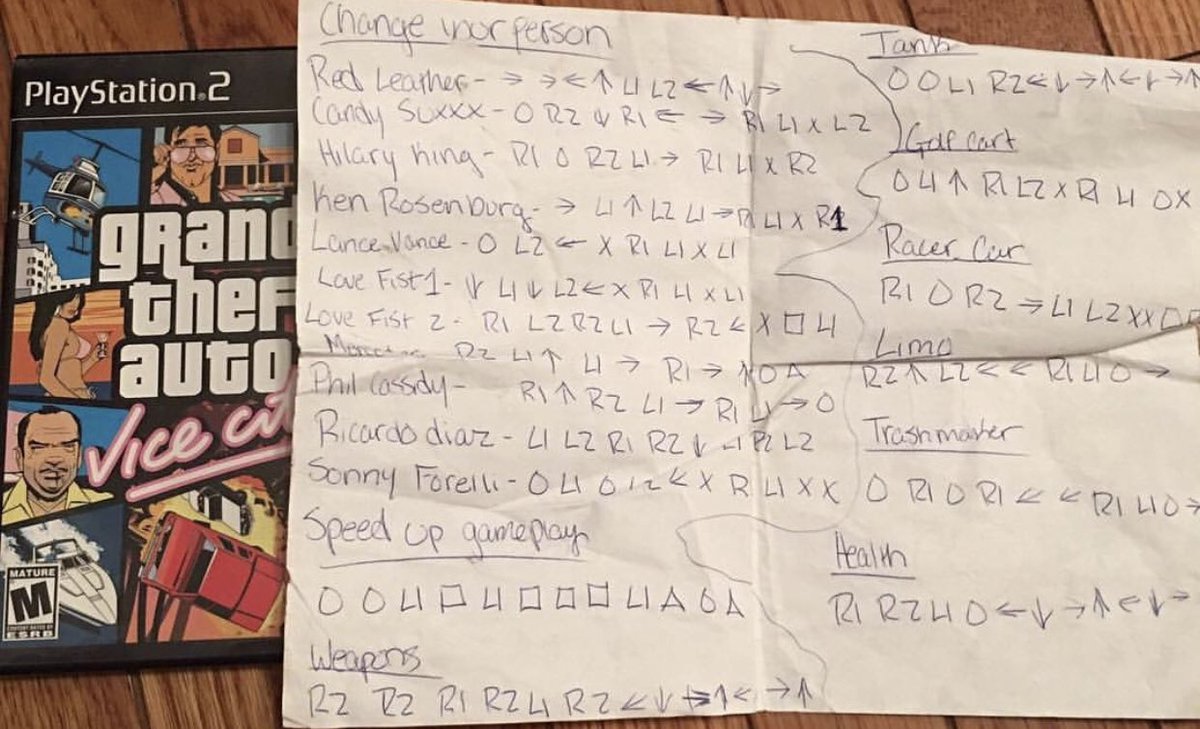 PlayStation.2
grand
theft
auto
Vice Cit
MATURE
M
CONTENT RATED BY
ESRB
Change inor person
Red Leather - → → ← ↑ L1 L2 ← ↑ ↓ →
Candy Suxxx - O R2 ↓ R1 ← → R1 L1 X L2
Hilary King - R1 O R2 L1 → R1 L1 X R2
Ken Rosenburg - → L1 ↑ L2 L1 → R1 L1 X R1
Lance Vance - O L2 ← X R1 L1 X L1
Love Fist 1 - ↓ L1 ↓ L2 ← X R1 L1 X L1
Love Fist 2 - R1 L2 R2 L1 → R2 ← X □ L1
R2 L1 ↑ L1 → R1 → O △
Phil Cassidy - R1 ↑ R2 L1 → R1 L1 → O
Ricardo diaz - L1 L2 R1 R2 ↓ L1 R2 L2
Sonny Forelli - O L1 O L2 ← X R1 L1 X X
Speed up gameplay
O O L1 □ L1 □ □ □ L1 △ O △
Weapons
R2 R2 R1 R2 L1 R2 ← ↓ → ↑ ← → ↑
Tank
O O L1 R2 ← ↓ → ↑ ← ↓ → ↑
Golf cart
O L1 ↑ R1 L2 X R1 L1 O X
Racer Car
R1 O R2 → L1 L2 X X □ □
Limo
R2 ↑ L2 ← ← R1 L1 O →
Trashmaster
O R1 O R1 ← ← R1 L1 O →
Health
R1 R2 L1 O ← ↓ → ↑ ← ↓ →